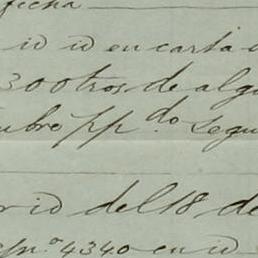 fecha
id id en carta
300 tros de alg
ubre pp.do segu
rio del 18 de
Expn.º 4340 en id